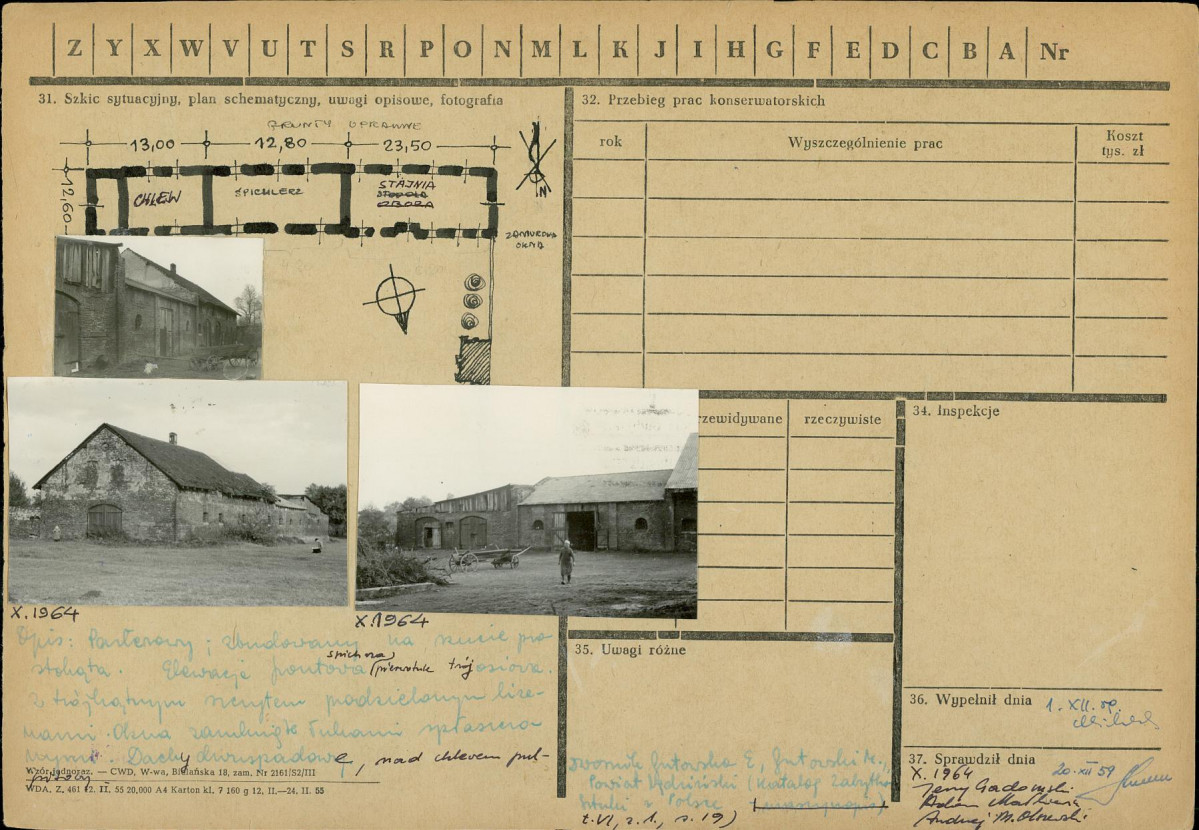 Z Y X W V U T S R P O N M L K J I H G F E D C B A Nr
31. Szkic sytuacyjny, plan schematyczny, uwagi opisowe, fotografia
GRUNTY UPRAWNE
13,00 12,80 23,50
12,60
CHLEW
SPICHLERZ
STAJNIA
STODOŁA
OBORA
N
ZAMUROW.
OKNA
X. 1964
X. 1964
Opis: Parterowy; zbudowany na rzucie pro
stokąta. Elewacja frontowa spichrza (pierwotnie trójosiowa
z trójkątnym szczytem podzielonym lize-
nami. Okna zamknięte łukami spłaszczo
nymi. Dachy dwuspadowe, nad chlewem pul-
pitowy
Wzór jednoraz. — CWD, W-wa, Bielańska 18, zam. Nr 2161/S2/III
WDA, Z. 461 12. II. 55 20,000 A4 Karton kl. 7 160 g 12. II.—24. II. 55
32. Przebieg prac konserwatorskich
rok
Wyszczególnienie prac
Koszt
tys. zł
rzewidywane
rzeczywiste
34. Inspekcje
35. Uwagi różne
Gutowska E., Gutowski M.,
Powiat będziński (Katalog Zabytków
Sztuki w Polsce (maszynopis)
t. VI, z. 1, s. 19)
36. Wypełnił dnia
1. XII.
37. Sprawdził dnia
X. 1964 20. XII 59
Jerzy Gadomski
Adam Małkiewicz
Andrzej M. Olszewski